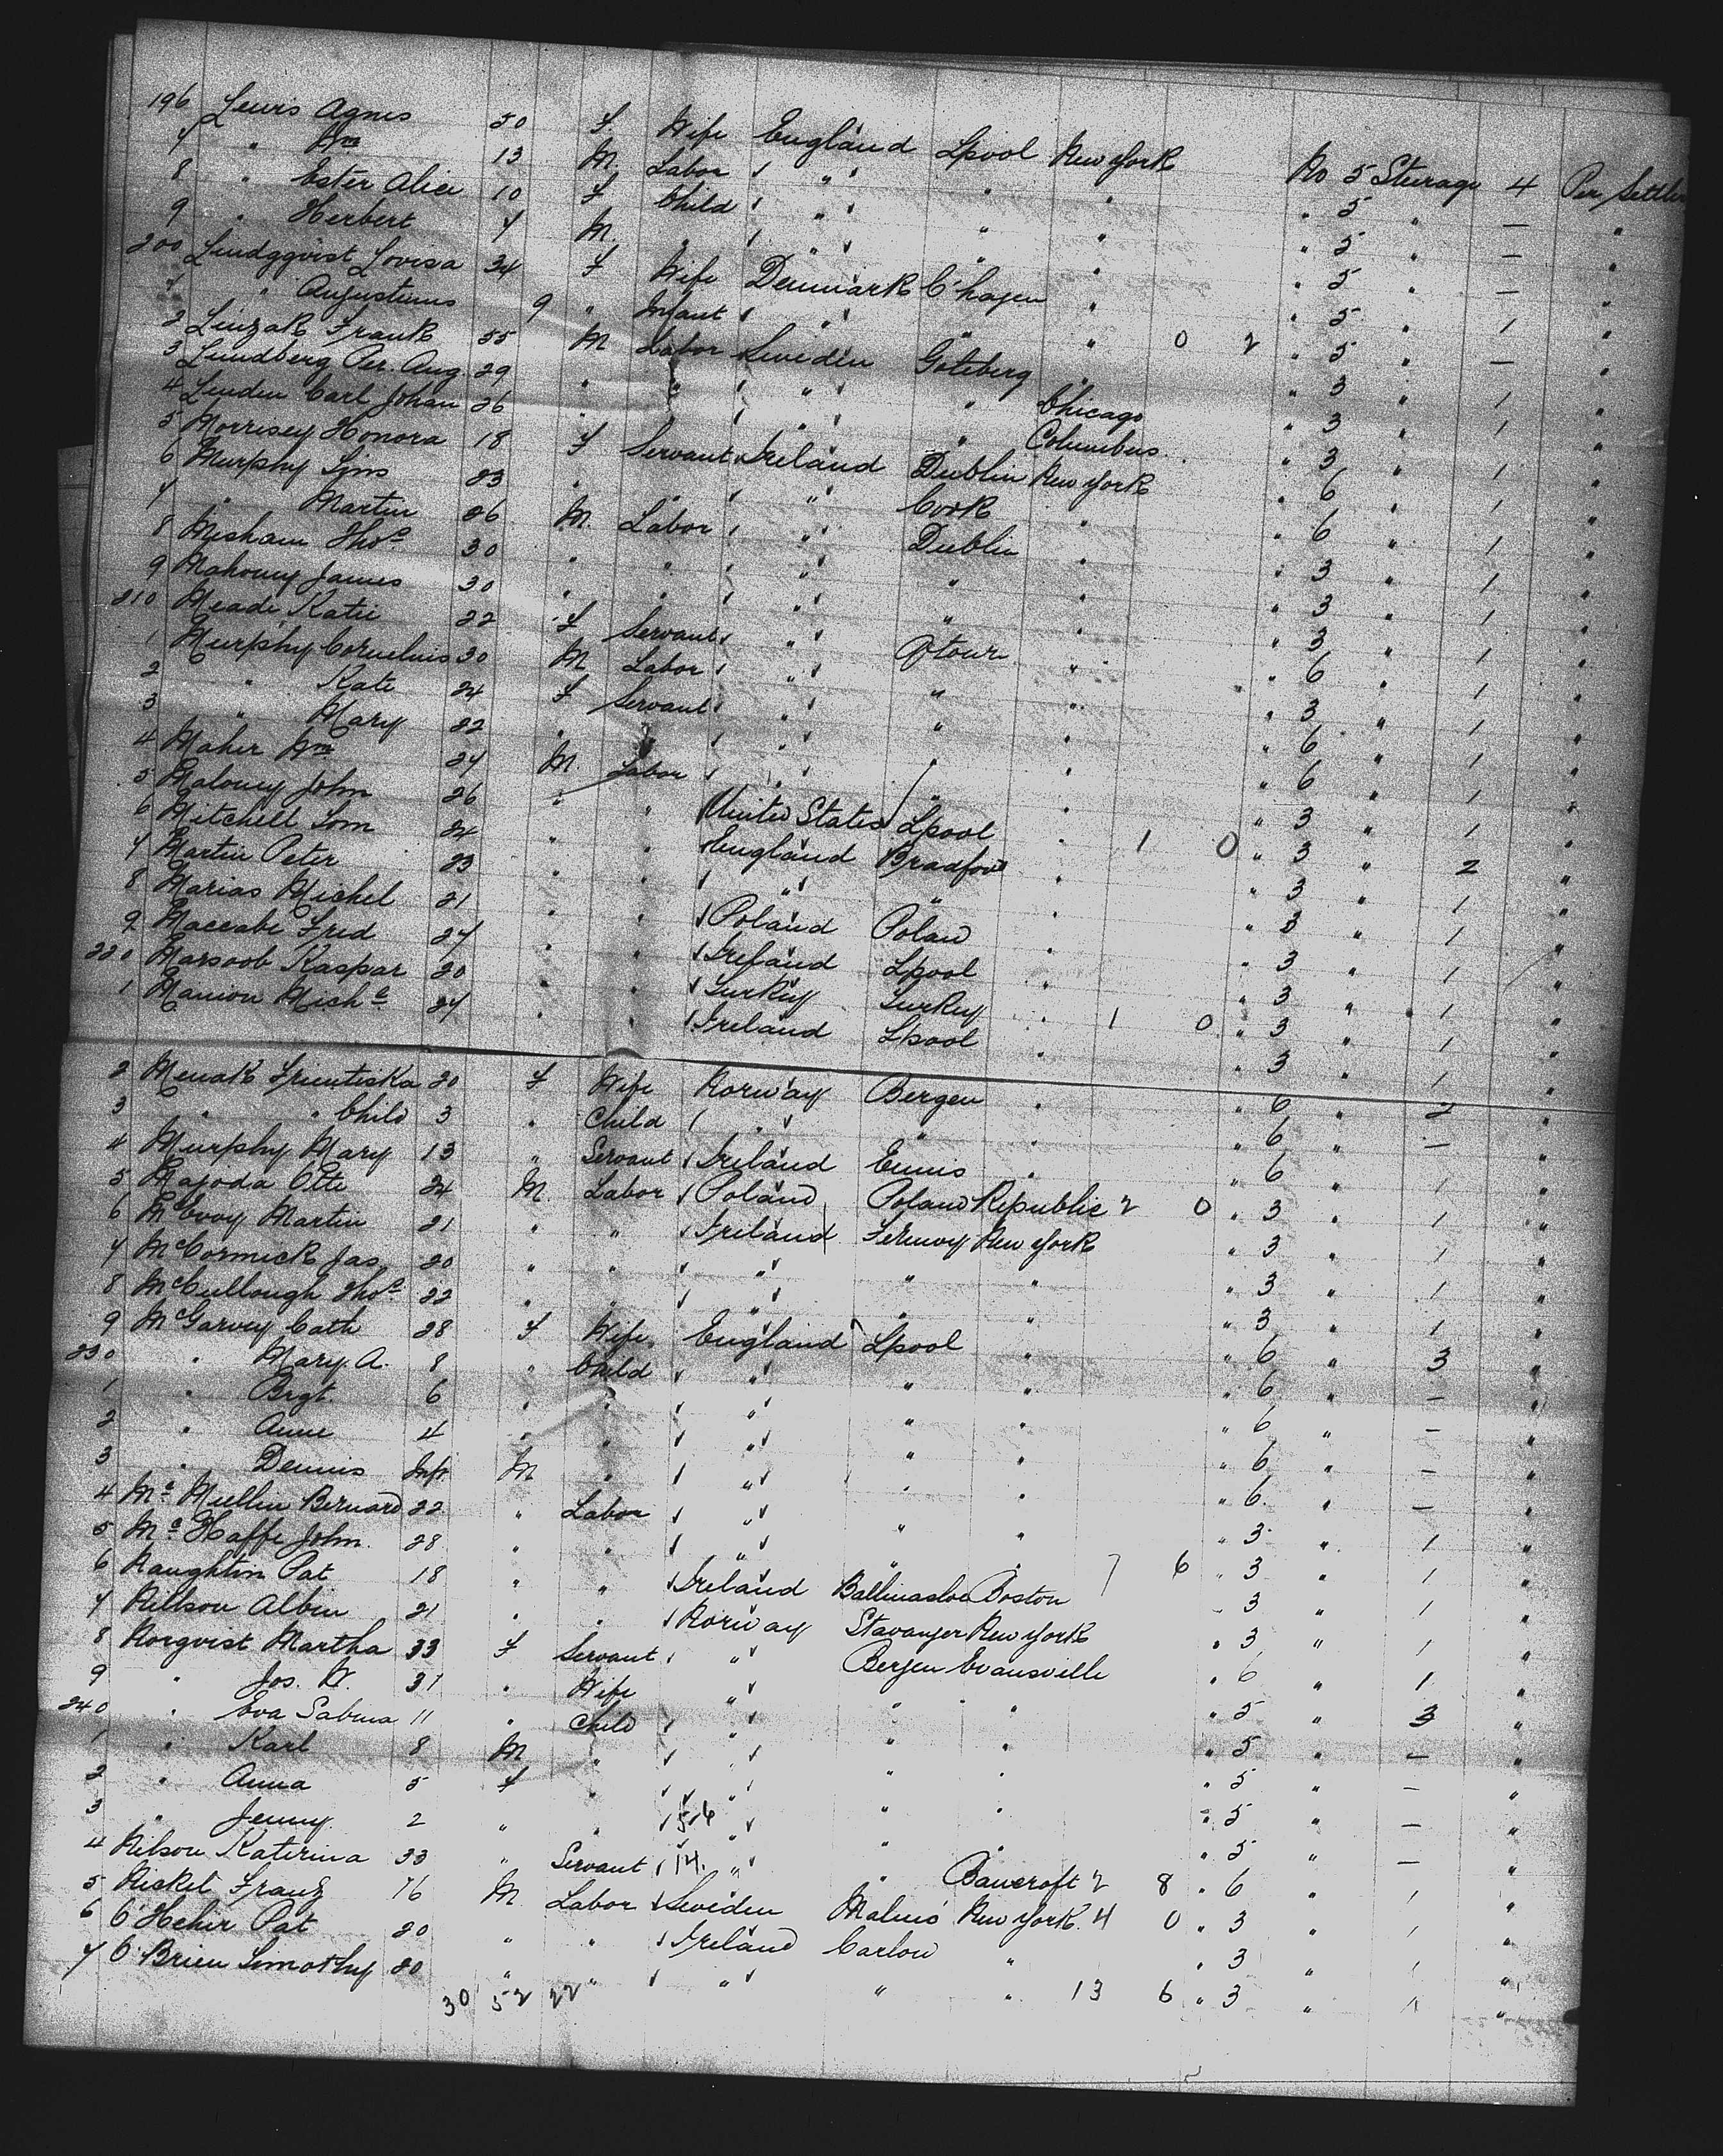 196 Lewis Agnes 50 F. Wife England Lpool New York No 5 Steerage 4 Per. Settler
7 " Wm 13 M. Labor " " " " 5 " — "
8 " Ester Alice 10 F Child " " " " 5 " — "
9 " Herbert 7 M. " " " " " 5 " — "
200 Lindgqvist Lovisa 34 F Wife Denmark C'hagen " " 5 " 1 "
1 " Augustinus 9 " Infant " " " 0 2 " 5 " — "
2 Linzak Frank 55 M Labor Sweden Goteberg " " 3 " 1 "
3 Lundberg Per. Aug. 29 " " " " Chicago " 3 " 1 "
4 Linden Carl Johan 26 " " " " Columbus " 3 " 1 "
5 Morrisey Honora 18 F Servant Ireland Dublin New York " 6 " 1 "
6 Murphy 23 " " " Cork " " 6 " 1 "
7 " Martin 26 M. Labor " Dublin " " 3 " 1 "
8 Misham Thos. 30 " " " " " " 3 " 1 "
9 Mahony James 30 " " " " " " 3 " 1 "
210 Meade Katie 22 F Servant " Qtown " " 6 " 1 "
1 Murphy Cornelius 30 M Labor " " " " 3 " 1 "
2 " Kate 24 F Servant " " " " 6 " 1 "
3 " Mary 22 " " " " " " 6 " 1 "
4 Maher Wm 27 M. Labor " " " " 3 " 1 "
5 Maloney John 26 " " United States Lpool " 1 0 " 3 " 2 "
6 Mitchell Tom 24 " " England Bradford " " 3 " 1 "
7 Martin Peter 23 " " " " " " 3 " 1 "
8 Marias Michel 21 " " Poland Polan " " 3 " 1 "
9 Maccabe Fred 27 " " Ireland Lpool " " 3 " 1 "
220 Marsoob Kaspar 20 " " Turkey Turkey " 1 0 " 3 " 1 "
1 Manion Michl 27 " " Ireland Lpool " " 3 " 1 "
2 Menak 20 F Wife Norway Bergen " " 6 " 2 "
3 " " Child 3 " Child " " " " 6 " — "
4 Murphy Mary 13 " Servant Ireland Ennis " " 6 " 1 "
5 Majoda Otto 24 M. Labor Poland Poland Republic 2 0 " 3 " 1 "
6 McEvoy Martin 21 " " Ireland New York " 3 " 1 "
7 McCormick Jas 20 " " " " " " 3 " 1 "
8 McCullough Thos. 22 " " " " " " 3 " 1 "
9 McGarvey Cath 28 F Wife England Lpool " " 6 " 3 "
230 " Mary A. 8 " Child " " " " 6 " — "
1 " Brgt. 6 " " " " " " 6 " — "
2 " Anne 4 " " " " " " 6 " — "
3 " Dennis Inft M " " " " " 6 " — "
4 Mc Mullin Bernard 22 " Labor " " " " 3 " 1 "
5 Mc Haffe John. 28 " " " " " 7 6 " 3 " 1 "
6 Naughtin Pat 18 " " Ireland Ballinasloe Boston " 3 " 1 "
7 Nillson Albin 21 " " Norway Stavanger New York " 3 " 1 "
8 Norqvist Martha 33 F Servant " Bergen Evansville " 6 " 1 "
9 " Jos. W. 31 " Wife " " " " 5 " 3 "
240 " Eva Sabina 11 " Child " " " " 5 " — "
1 " Karl 8 M " " " " " 5 " — "
2 " Anna 5 F " " " " " 5 " — "
3 " Jenny 2 " " 56 " " " " 5 " — "
4 Nilson Katerina 33 " Servant 14. " " Bancroft 2 8 " 6 " 1 "
5 Nickel Franz 16 M Labor Sweden Malmö New York. 4 0 " 3 " 1 "
6 O'Hehir Pat 20 " " Ireland Carlow " " 3 " 1 "
7 O'Brien Timothy 20 " " " " " 13 6 " 3 " 1 "
30 52 22